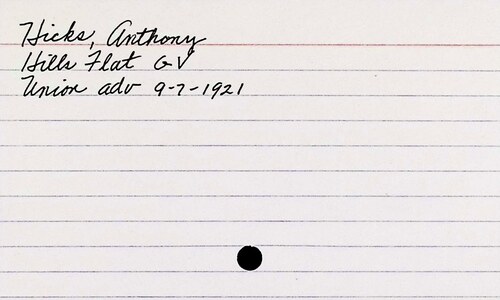 Hicks, Anthony
Hills Flat GV
Union adv 9-7-1921